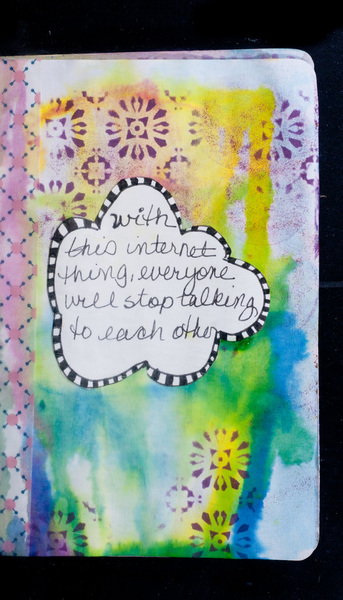 with
this internet
thing, everyone
will stop talking
to each other